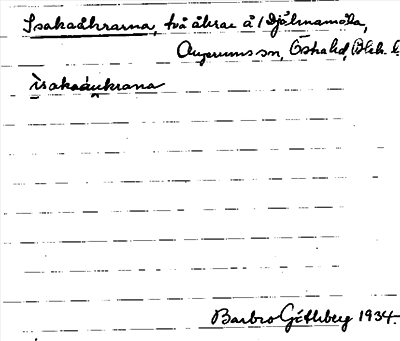 Isakaåkrarna, två åkrar å 1 Djälnamåla,
Augerums sn, Östra hd, Blek. l.
ìsakaáukrana
Barbro Göthberg 1934.